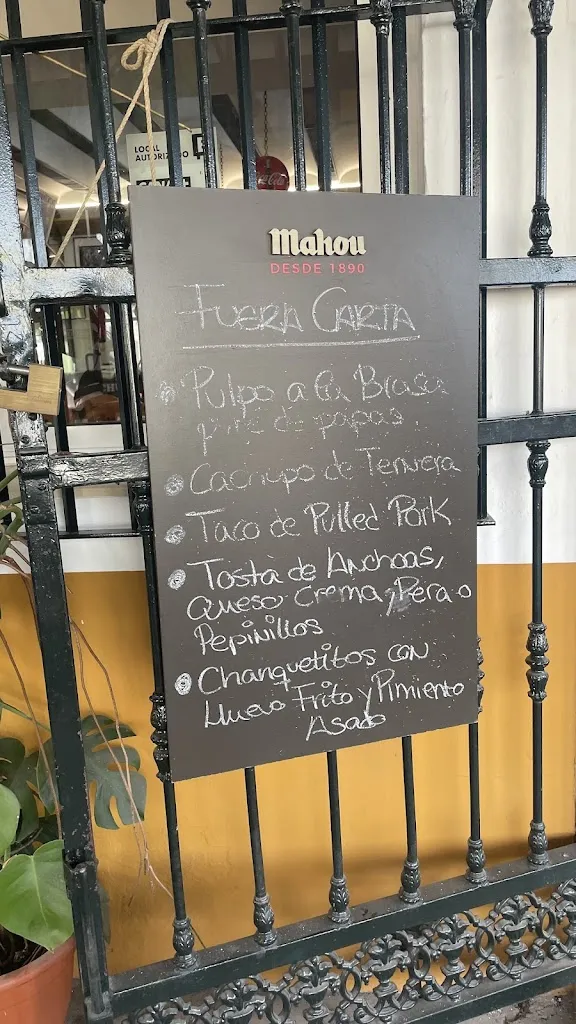 LOCAL
AUTORIZADO
Coca-Cola
Mahou
DESDE 1890
FUERA CARTA
Pulpo a la Brasa
puré de papas
Cachupo de Ternera
Taco de Pulled Pork
Tosta de Anchoas,
Queso Crema, Pera o
Pepinillos
Chanquetitos con
Huevo Frito y Pimiento
Asado